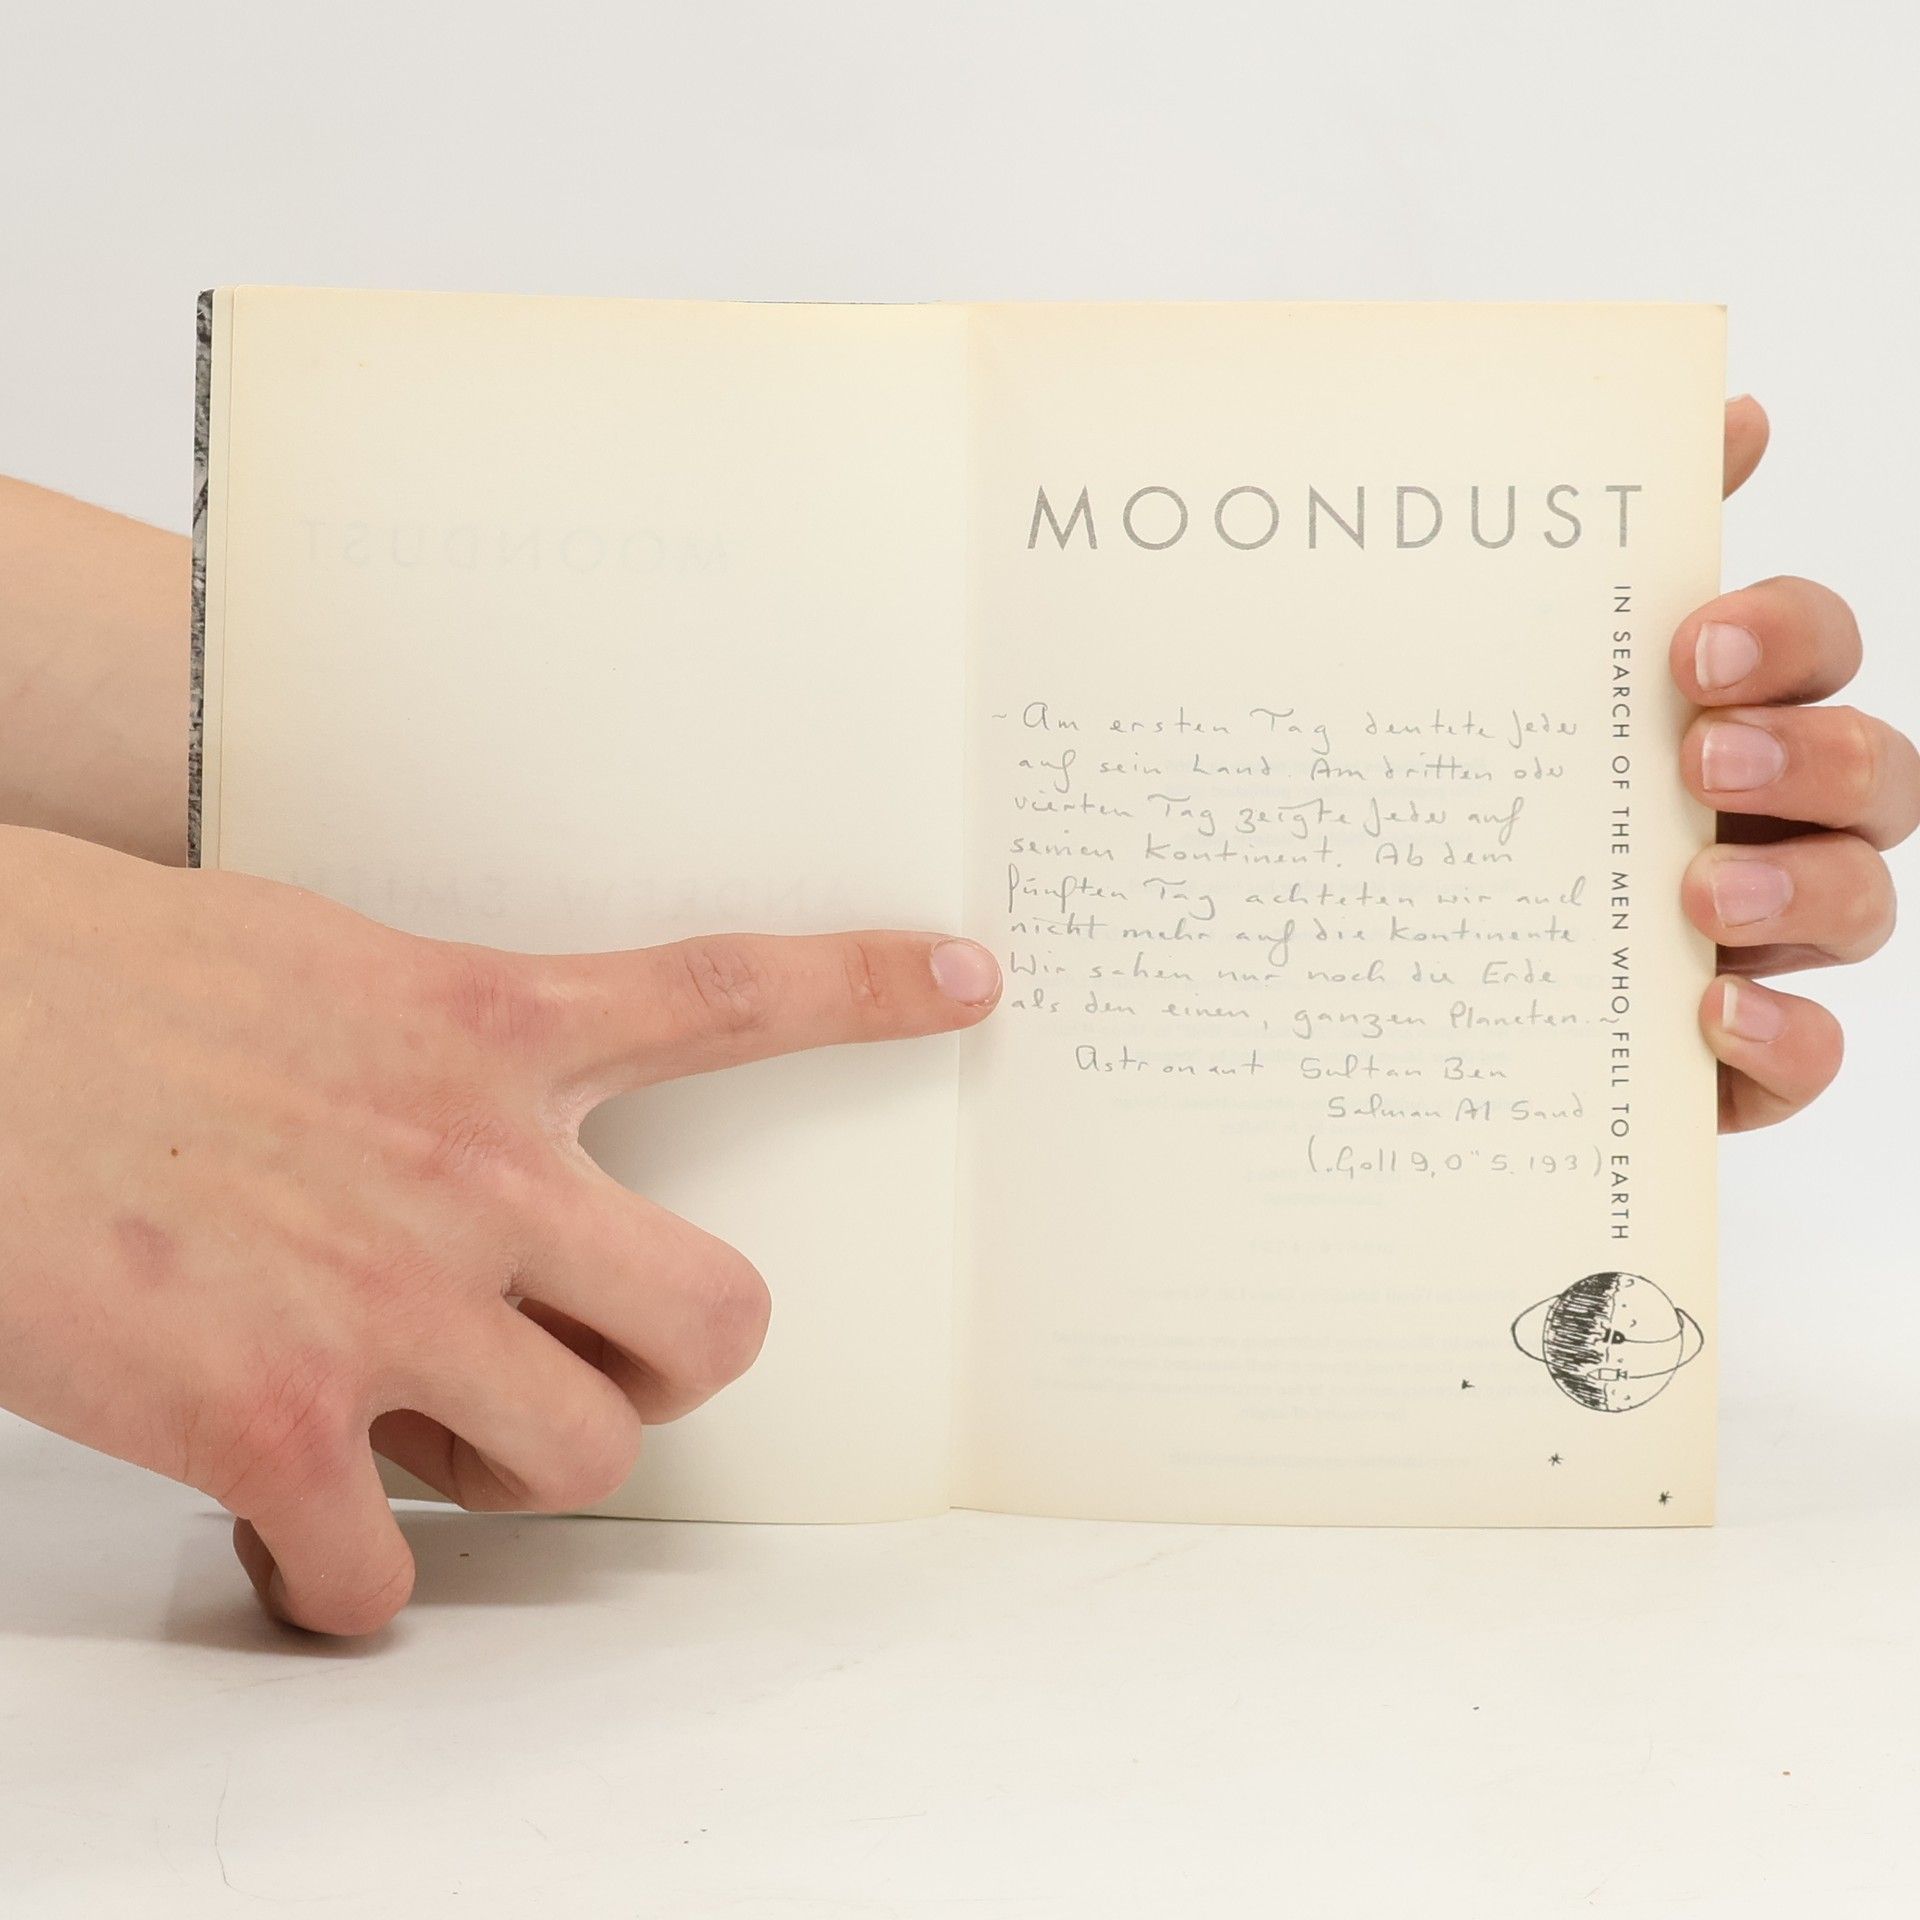 MOONDUST
IN SEARCH OF THE MEN WHO FELL TO EARTH
~ Am ersten Tag deutete Jeder
auf sein Land. Am dritten oder
vierten Tag zeigte Jeder auf
seinen Kontinent. Ab dem
fünften Tag achteten wir auch
nicht mehr auf die Kontinente
Wir sahen nur noch die Erde
als den einen, ganzen Planeten. ~
Astronaut Sultan Ben
Salman Al Saud
S. 193)